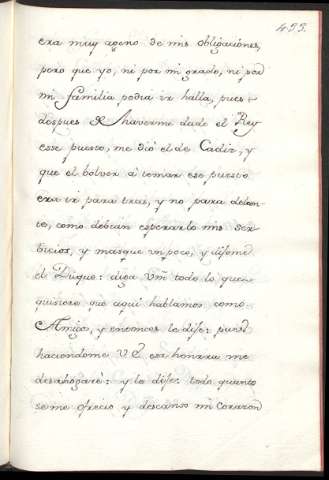 493.
era muy ageno de mis obligaciones,
pero que yo, ni por mi grado, ni por
mi familia podia ir halla, pues
despues de haverme dado el Rey
esse puesto, me dió el de Cadiz, y
que el bolver à tomar ese puesto
era ir para tras, y no para delan-
te, como debian esperarlo mis ser-
bicios, y mas que un poco, y dijome
el Duque: diga Vm todo lo que
quisiere que aqui hablamos como
Amigo, y entonces le dije: pues
haciendome V.E. esa honrra me
desahogarè: y le dije todo quanto
se me ofrecio y descansò mi Corazon